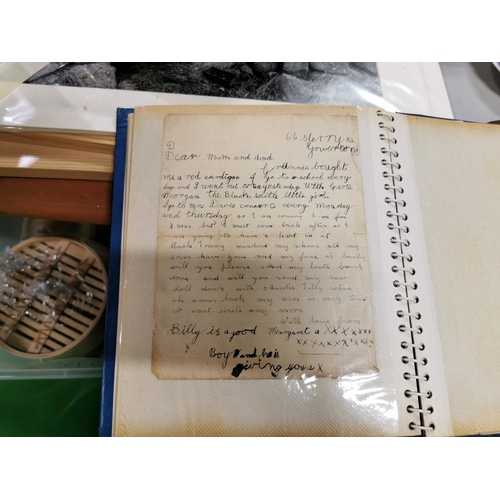 66 sterry rd
Gowerton
Dear Mam and dad
bought
me a red cardigan I go to school every
day and I went out yesterday with Gertie
Morgan the Black Smiths little girl.
I go to Mrs Davis concert every Monday
and thursday so I am coming home for
X mas but I must come back after as I
am going to have a part in it
Uncle Tommy mended my shoes all my
sores have gone and my face is lovely
will you please send my boots
done and will you send my
doll down with Auntie Tilly when
she comes back my arm is very
to cant write any more
With love from
Billy is a good Margaret a x x x x x x
x x x x x x x x x
Boy and he is
giving you a x